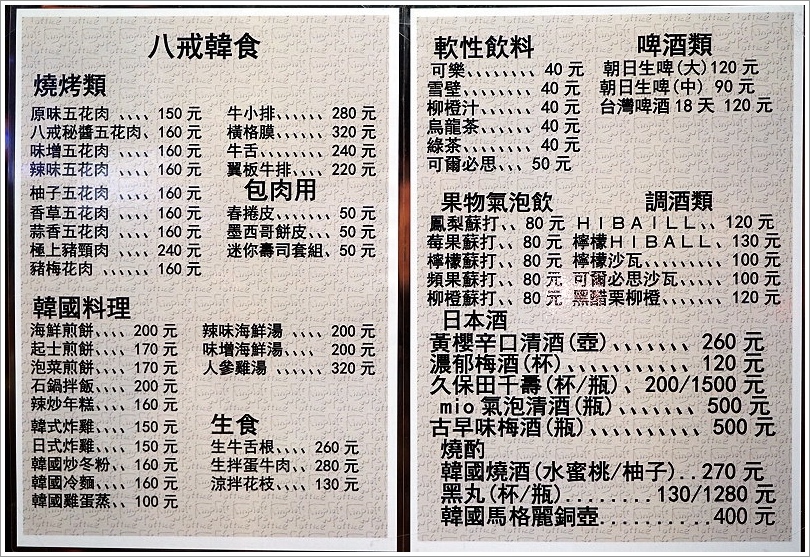 八戒韓食
燒烤類
原味五花肉、、、、150元
八戒秘醬五花肉、160元
味增五花肉、、、、160元
辣味五花肉、、、、160元
柚子五花肉、、、、160元
香草五花肉、、、、160元
蒜香五花肉、、、、160元
極上豬頸肉、、、、240元
豬梅花肉、、、、、、160元
牛小排、、、、、、280元
橫格膜、、、、、、320元
牛舌、、、、、、、、240元
翼板牛排、、、、220元
包肉用
春捲皮、、、、、、、50元
墨西哥餅皮、、、50元
迷你壽司套組、50元
韓國料理
海鮮煎餅、、、、200元
起士煎餅、、、、170元
泡菜煎餅、、、、170元
石鍋拌飯、、、、200元
辣炒年糕、、、、160元
韓式炸雞、、、、150元
日式炸雞、、、、150元
韓國炒冬粉、、160元
韓國冷麵、、、、160元
韓國雞蛋蒸、、100元
辣味海鮮湯、、、、200元
味增海鮮湯、、、、200元
人參雞湯、、、、、、320元
生食
生牛舌根、、、、260元
生拌蛋牛肉、、280元
涼拌花枝、、、、130元
軟性飲料
可樂、、、、、、、、40元
雪壁、、、、、、、、40元
柳橙汁、、、、、、40元
烏龍茶、、、、、、40元
綠茶、、、、、、、、40元
可爾必思、、、50元
啤酒類
朝日生啤(大)120元
朝日生啤(中) 90元
台灣啤酒18天 120元
果物氣泡飲
鳳梨蘇打、、80元
莓果蘇打、、80元
檸檬蘇打、、80元
蘋果蘇打、、80元
柳橙蘇打、、80元
調酒類
HIBAILL、、120元
檸檬HIBALL、130元
檸檬沙瓦、、、、、、、100元
可爾必思沙瓦、、、、、100元
黑醋栗柳橙、、、、、、、120元
日本酒
黃櫻辛口清酒(壺)、、、、、、、260元
濃郁梅酒(杯)、、、、、、、、、、、120元
久保田千壽(杯/瓶)、200/1500元
mio氣泡清酒(瓶)、、、、、、、、500元
古早味梅酒(瓶)、、、、、、、、、、500元
燒酌
韓國燒酒(水蜜桃/柚子)..270元
黑丸(杯/瓶)........130/1280元
韓國馬格麗銅壺..........400元